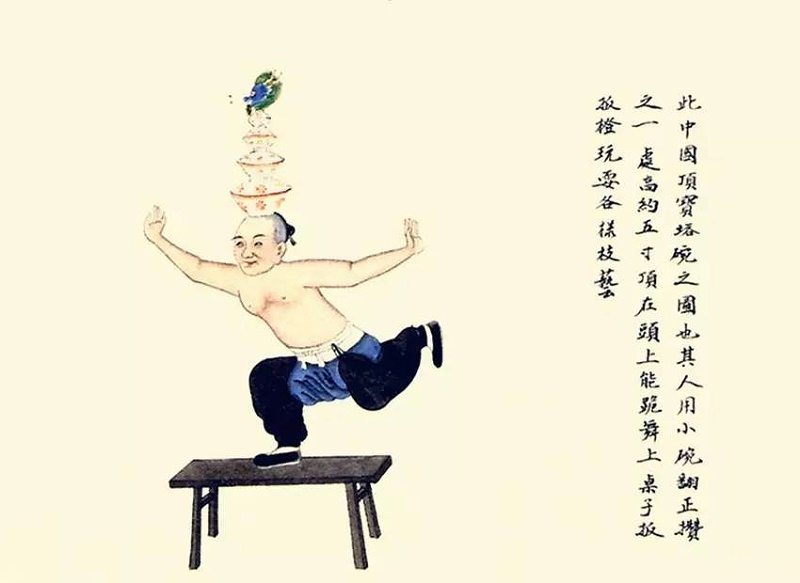 此中國頂寶塔碗之圖也其人用小碗翻正攢
之一處高約五寸頂在頭上能跪舞上桌子扳
扳橙玩耍各樣技藝